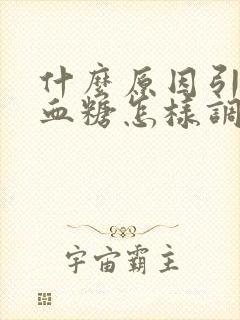 什麼原因引
血糖怎樣調
宇宙霸主